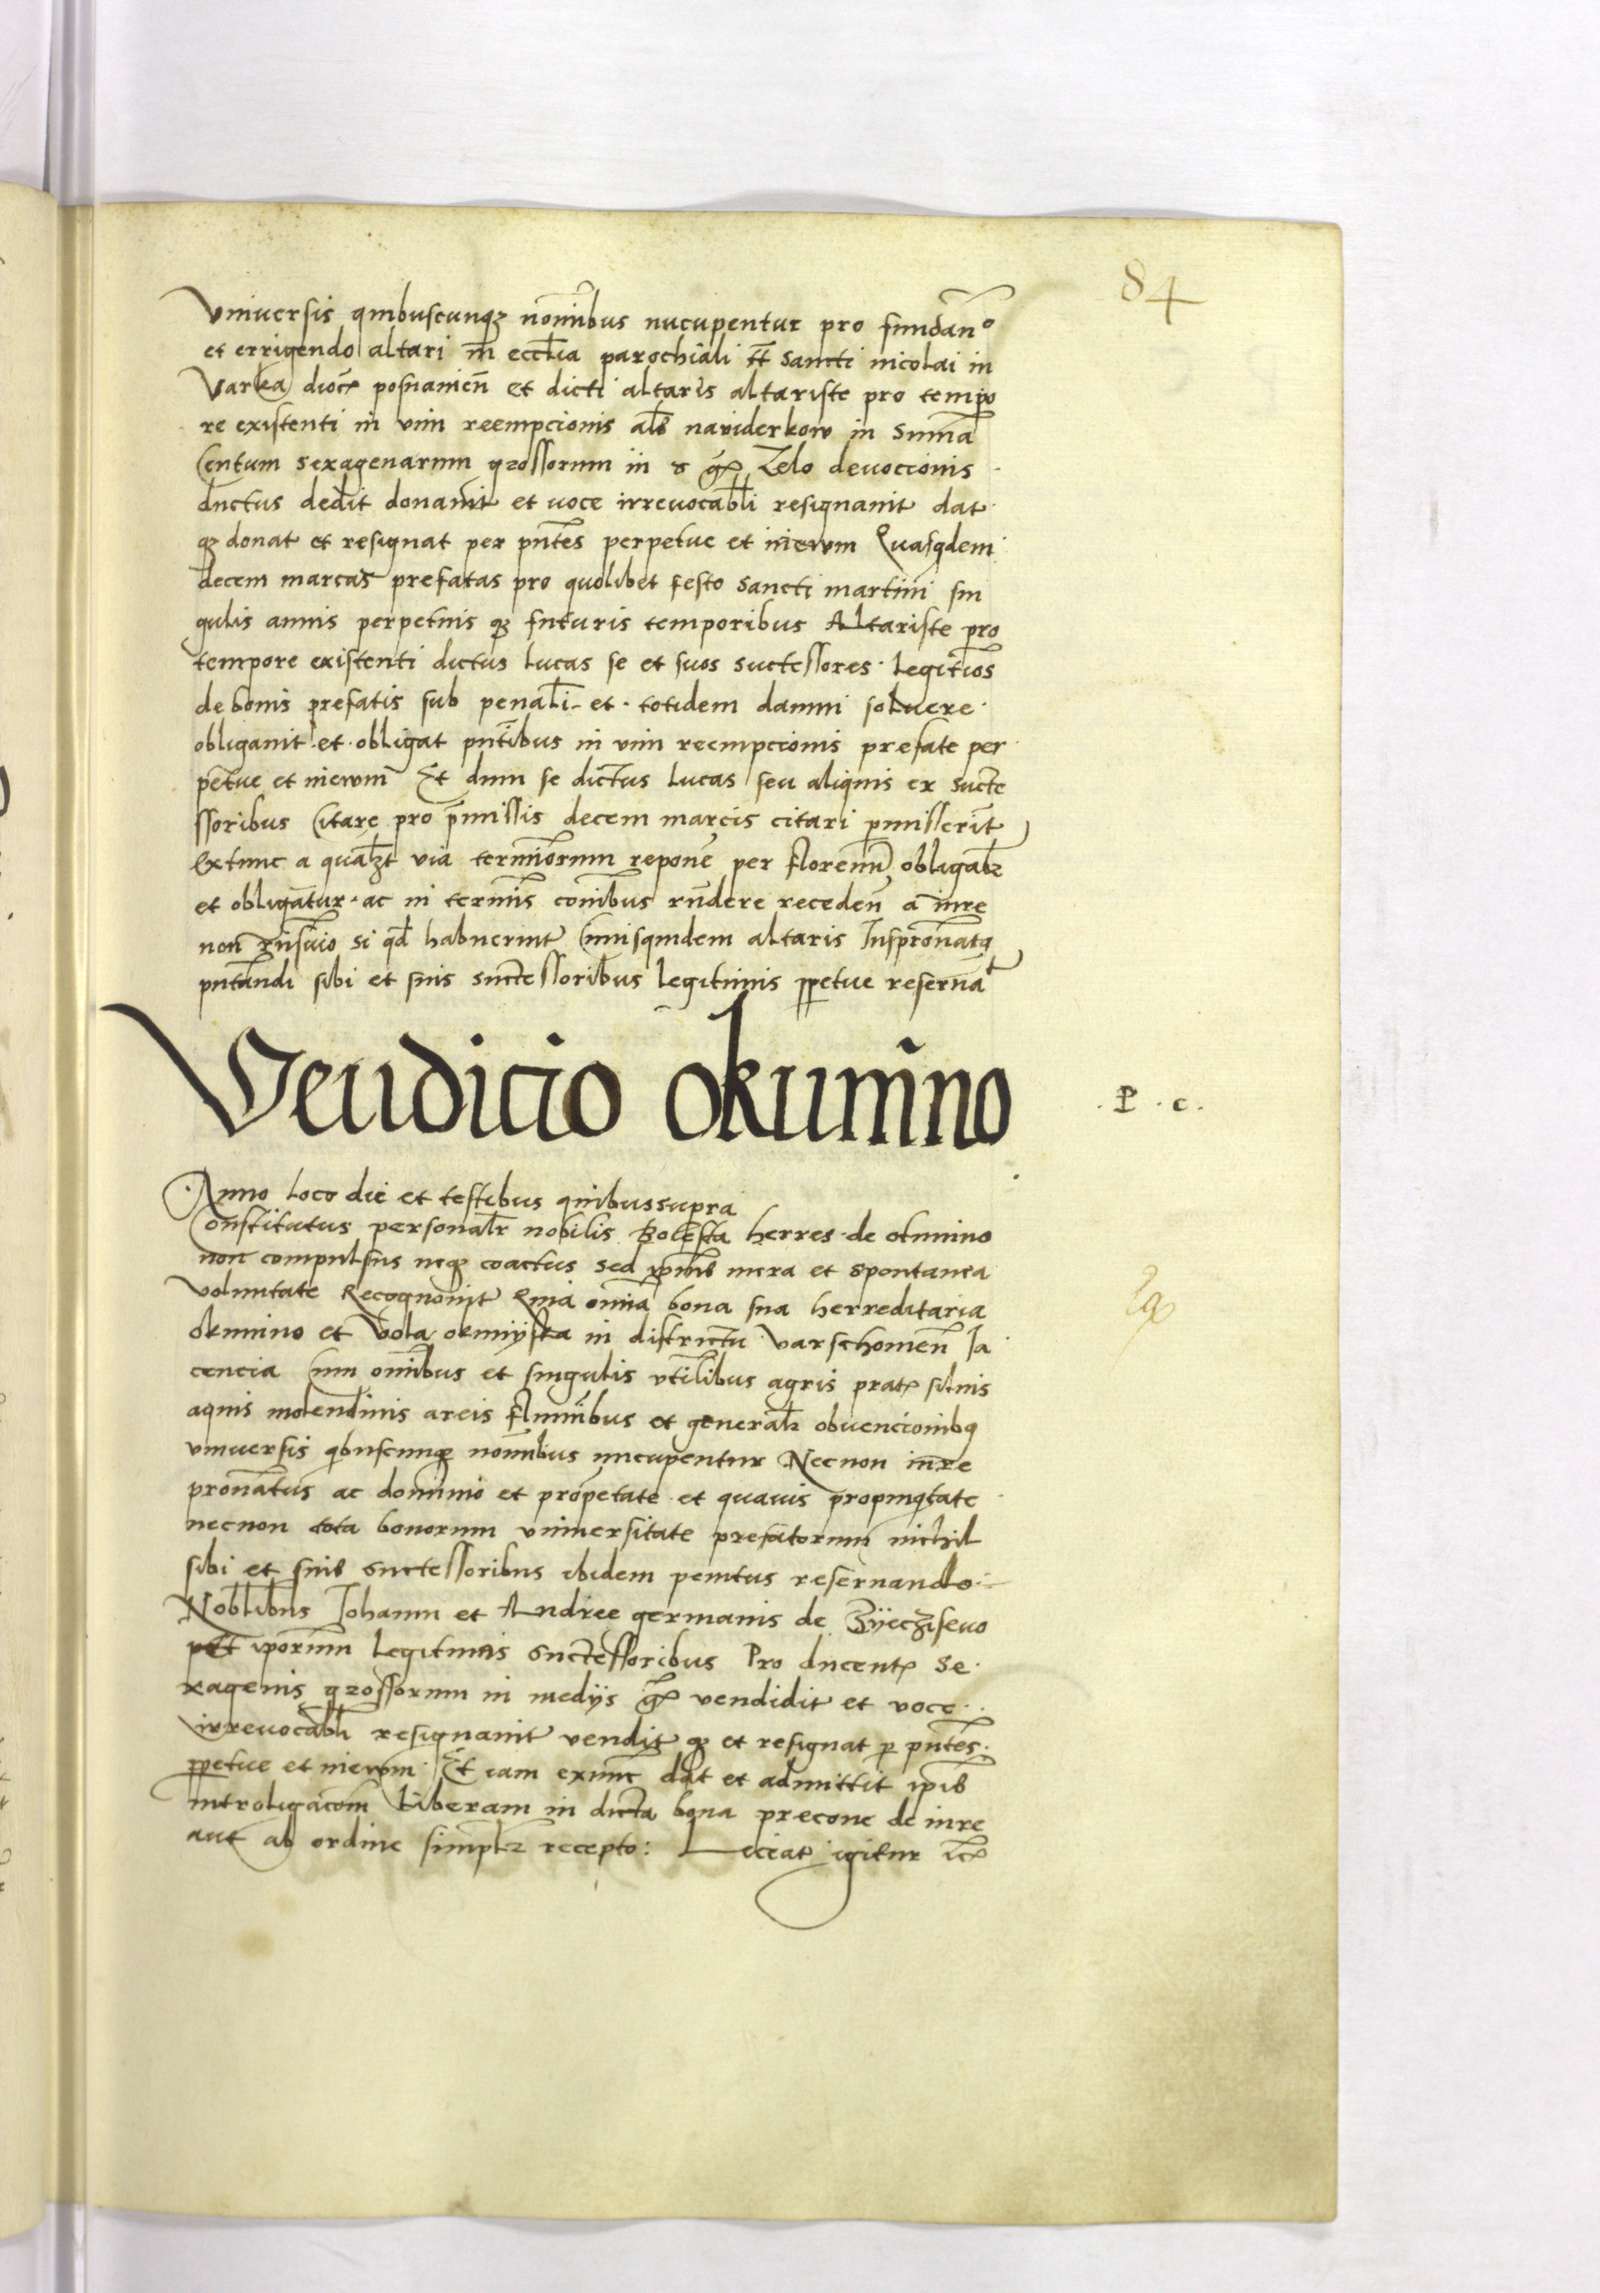 84
Vniuersis quibuscunqз nom̄ibus nucupentur pro fundan̄o
et errigendo altari in eccl̄ia parochiali tt̄ sancti nicolai in
Varka dioc̄ posnanien̄ et dicti altaris altariste pro tempo
re existenti in vim reempcionis als̄ naviderkow in Sum̄a
Centum sexagenarum grossorum in Zelo deuocionis
ductus dedit donauit et uoce irreuocabl̄i resignauit dat
qз donat et resignat per pn̄tes perpetue et in ewm Quasqdem
decem marcas prefatas pro quolibet festo sancti martini sin
gulis annis perpetuis qз futuris temporibus Altariste pro
tempore existenti dictus Lucas se et suos successores legitīos
de bonis prefatis sub penal̄i et totidem damni soluere
obligauit et obligat pn̄tibus in vim reempcionis prefate per
petue et in ewm Et dum se dictus Lucas seu aliquis ex succe
ssoribus Citare pro p̄missis decem marcis citari p̄misserint
Extunc a qualꝫt via terminorum repone per florenū obligabr̄
et obligātur ac in termis̄ com̄bus rn̄dere receden̄ a iure
non si qd̄ habuerint Cuiusquidem altaris Iuspronatq
pn̄tandi sibi et suis successoribus Legitimis ꝑpetue reseruat
Vendicio okum̄no
. P . c .
Anno Loco die et testibus quibussupra
Constitutus personalr̄ nobilis Bolesta herres de okunino
non compulsus neqз coactus sed mera et spontanea
voluntate Recognouit Quia om̄ia bona sua herreditaria
okunino et Vola okuniyska in districtu varschouien̄ Ia
cencia Cum om̄ibus et singulis vtilibus agris prat siluis
aquis molendinis areis fluminibus et generalr̄ obuencionibq
vniuersis qbuscunqз nom̄ibus nucupentur Necnon iure
pronatus ac dominio et propetate et quauis propinqtate
necnon tota bonorum vniuersitate prefatorum nichil
sibi et suis successoribus ibidem penitus reseruando
Nobl̄ibus Iohanni et Andree germanis de
iporum Legitimis successoribus Pro ducent se
xagenis grossorum in medijs gr̄ vendidit et voce
irreuocabl̄i resignauit vendit qз et resignat ꝑ pn̄tes
ꝑpetue et in ewm Et iam exnunc dat et admittit ip̄is
introligacōm liberam in dicta bona precone de iure
aut ab ordine simplr̄ recepto: Liceat igitur